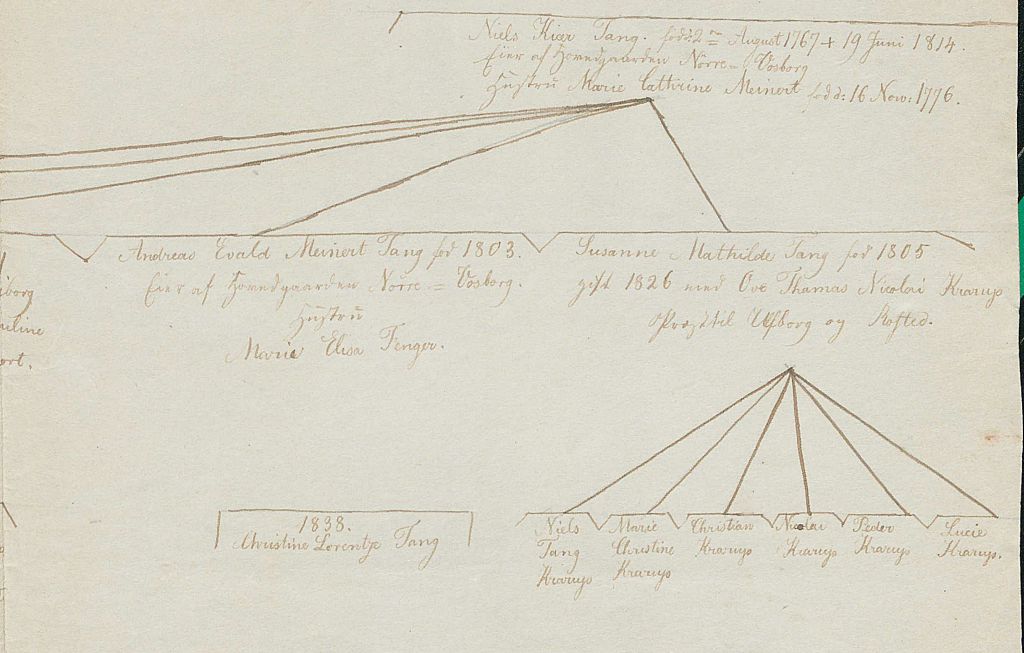 Niels Kiær Tang. född: 2 August 1767 + 19 Juni 1814.
Eier af Hovedgaarden Nörre = Vosborg
Hustru Marie Cathrine Meinert född: 16 Nov: 1776.
Andreas Evald Meinert Tang fod 1803.
Eier af Hovedgaarden Nörre = Vosborg.
Hustru
Marie Elisa Fenger.
Susanne Mathilde Tang fod 1805
gift 1826 med Ove Thamas Nicolai Krarup
Præst til Ulfborg og Rafted.
iborg
uline
ort.
1838.
Christine Lorentze Tang
Niels
Tang
Krarup
Marie
Christine
Krarup
Christian
Krarup
Nicolai
Krarup
Peder
Krarup
Lucie
Krarup.